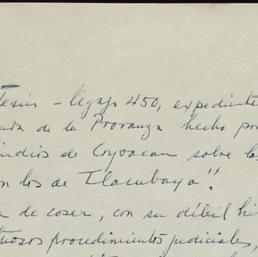 legajo 450, expediente
de la Provanza hecha por
indios de Coyoacan sobre la
con los de Tlacubaya".
de coser, con su débil hi
procedimientos judiciales,